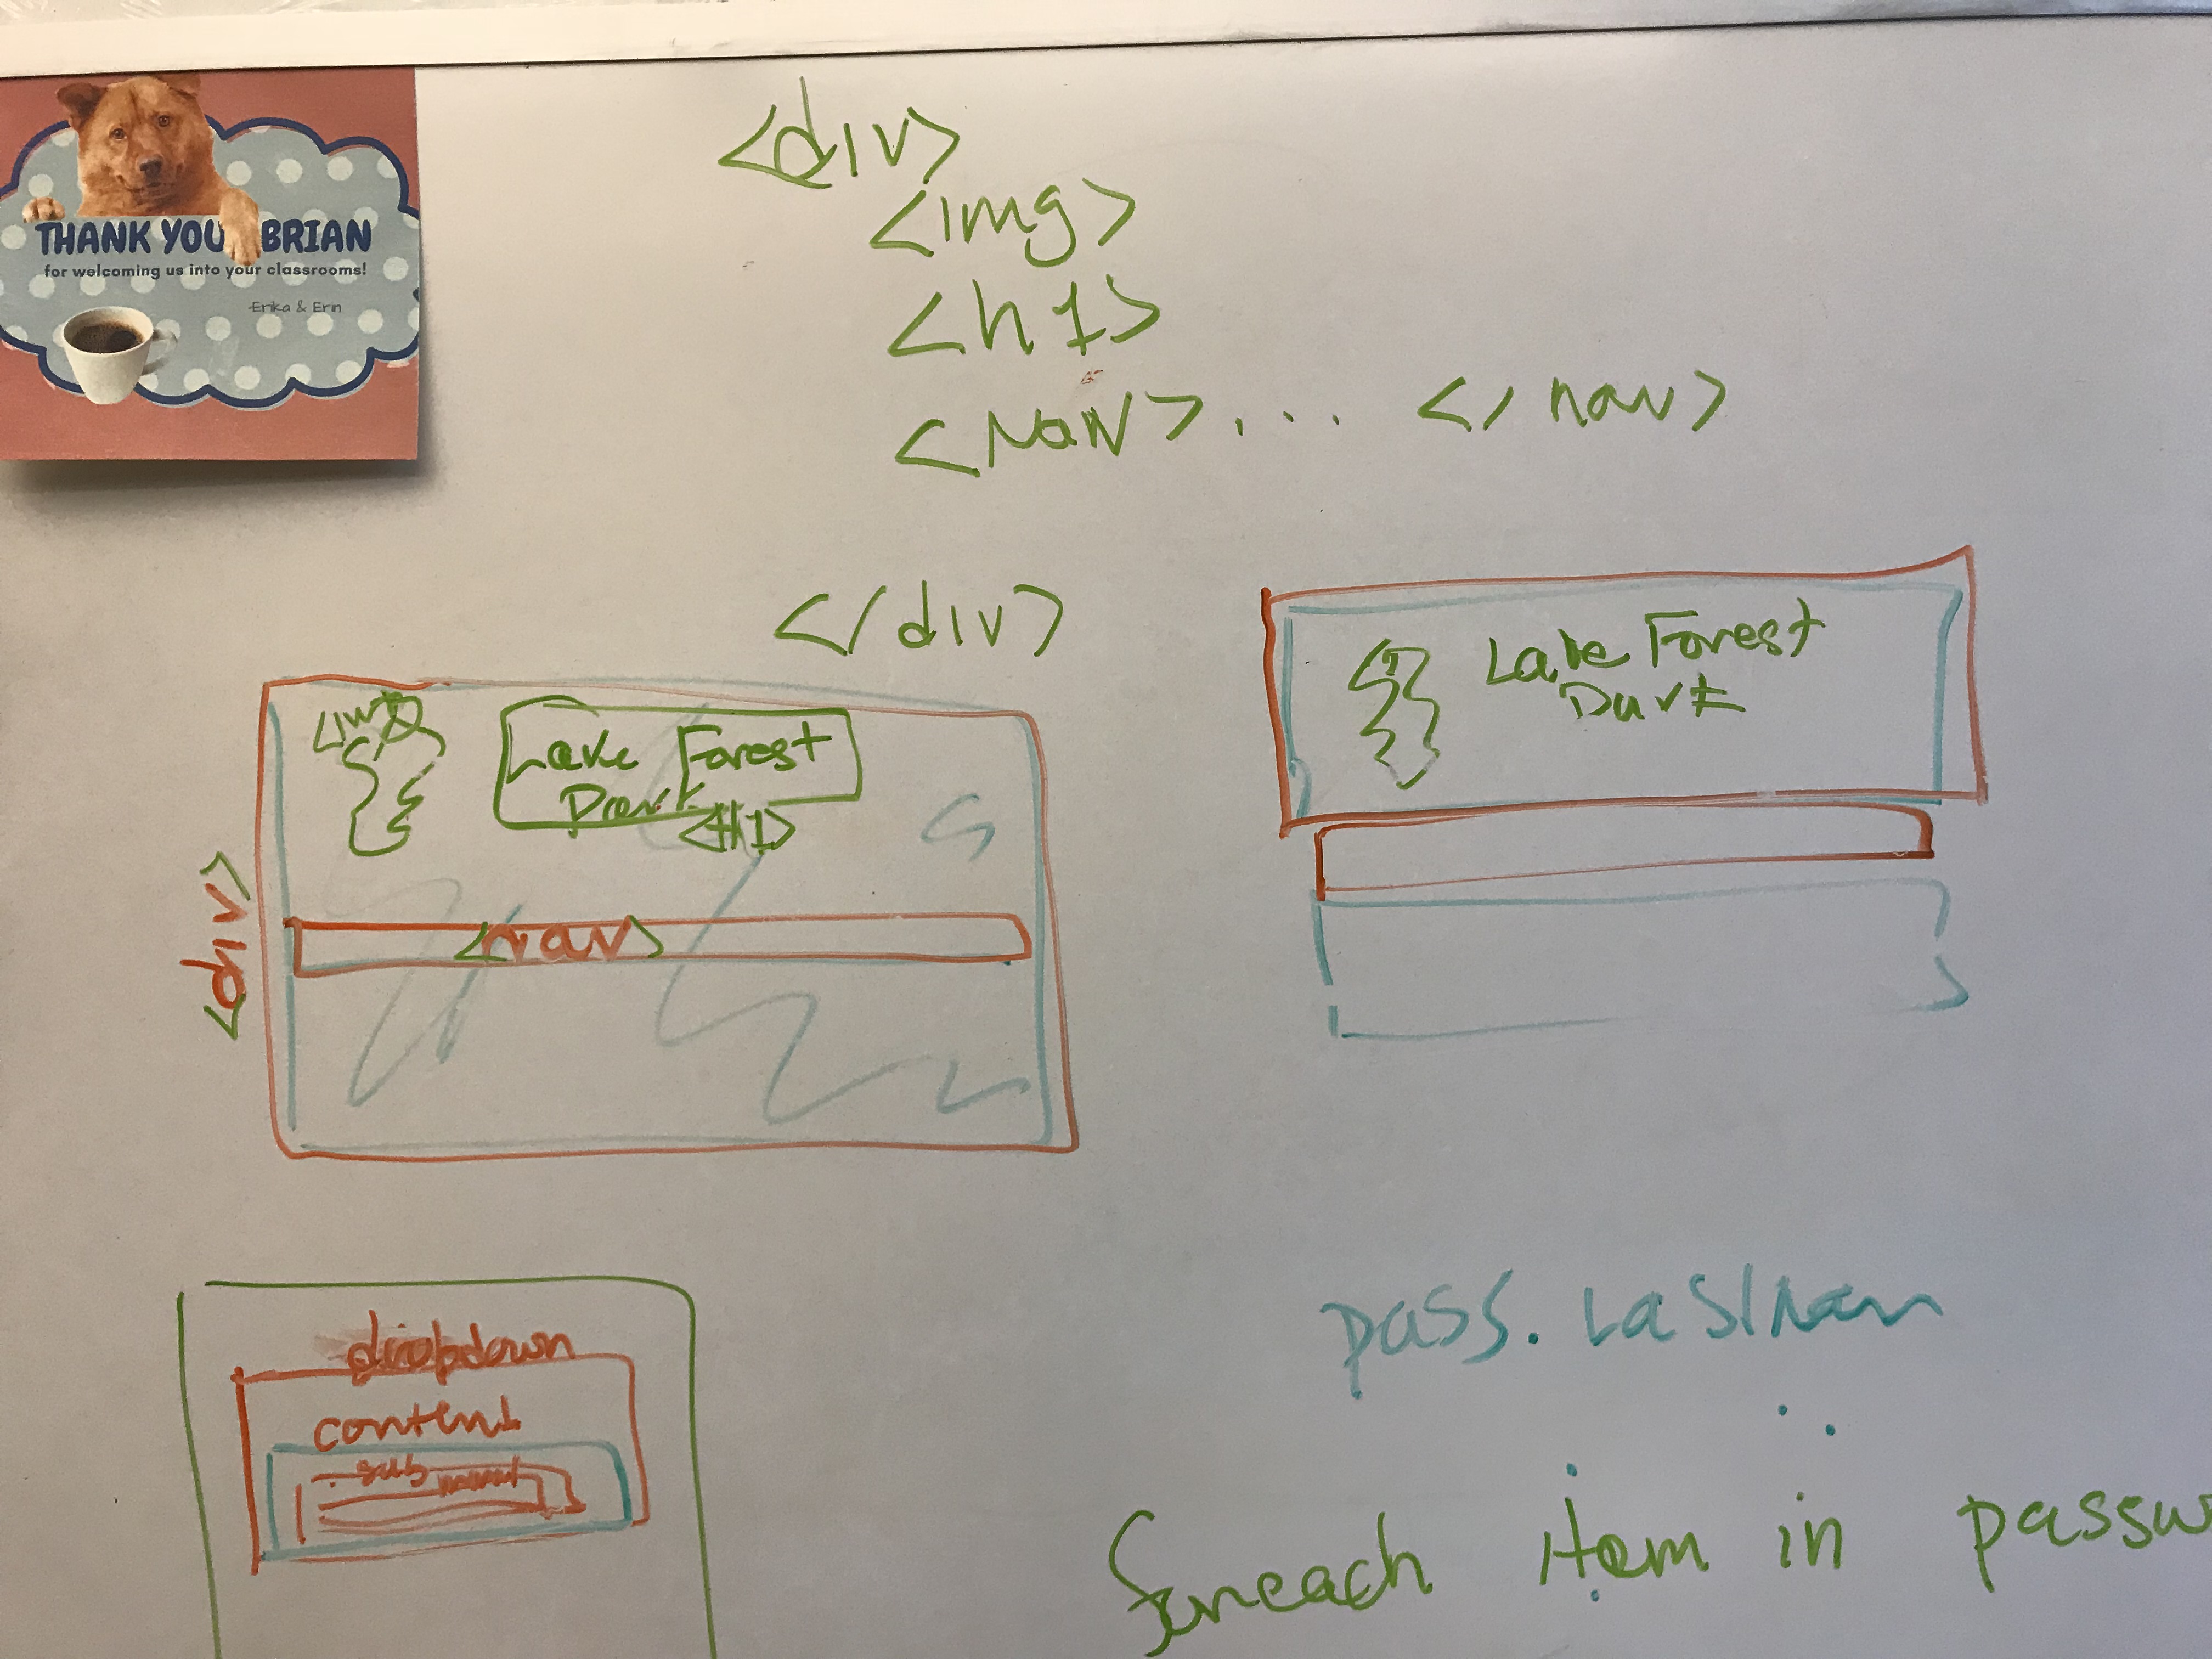 THANK YOU BRIAN
for welcoming us into your classrooms!
-Erika & Erin
<div>
<img>
<h1>
<Nav>... </nav>
</div>
<img>
Lake Forest
Park
<h1>
<nav>
<div>
Lake Forest
Park
dropdown
content
.sub
pass. LastNam
foreach item in passw